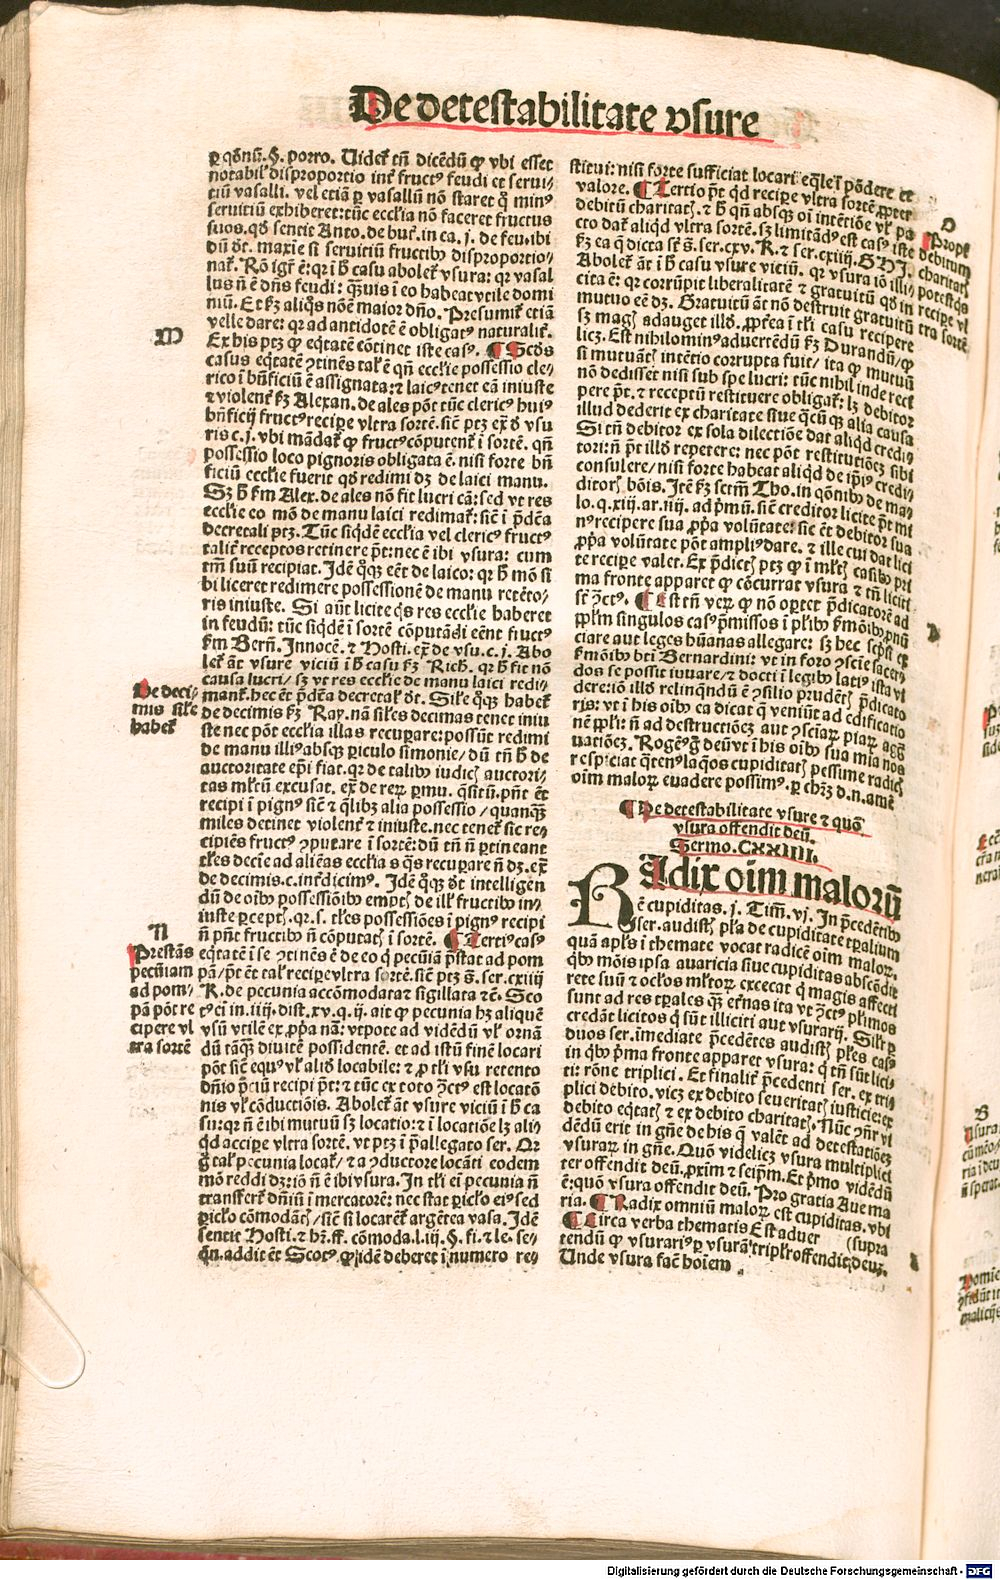 De detestabilitate vsure
ꝑ qōnū. §. porro. Uidet᷑ tn̄ dicēdū ꝙ vbi esset
notabil᷑ disproportio int᷑ fruct⁹ feudi et serui-
tiū vasalli. vel etiā ꝑ vasallū nō staret q̄ min⁹
seruitiū exhiberet: tūc eccl̄ia nō faceret fructus
suos. qd̄ sentit Anto. de but. in ca. j. de feu. ibi
dū d̄t. maxīe si seruitiū fructibꝰ disproportio-
nat᷑. Rō igit᷑ ē: qr i h̄ casu abolet᷑ vsura: qr vasal
lus n̄ ē dn̄s feudi: quis i eo habeat vtile domi
niū. Et km aliq̄s nōē maior dn̄o. Presumit᷑ etiā
velle dare: qr ad antidotē ē obligat⁹ naturalit᷑.
M
Ex his ptꝫ ꝙ eq̄tatē cōtinet iste cas⁹. ¶ Scd̄s
casus eq̄tatē ꝯtinēs tal᷑ ē qn̄ eccl̄ie possessio cle-
rico i bn̄ficiū ē assignata: ⁊ laic⁹ tenet eā iniuste
⁊ violent᷑ km Alexan. de ales pōt tūc cleric⁹ hui⁹
bn̄ficij fruct⁹ recipe vltra sortē. sic̄ ptꝫ ex̄ d̄ vsu
ris c. j. vbi mādat᷑ ꝙ fruct⁹ cōputent᷑ i sortē. qn̄
possessio loco pignoris obligata ē. nisi forte bn̄
ficiū eccl̄ie fuerit qd̄ redimi dꝫ de laici manu.
Sꝫ h̄ km Alex. de ales nō fit lucri cā: sed vt res
eccl̄ie eo mō de manu laici redimat᷑: sic̄ i p̄dēa
decretali ptꝫ. Tūc siqdē eccl̄ia vel cleric⁹ fruct⁹
talit᷑ receptos retinere p̄t: nec ē ibi vsura: cum
tm̄ suū recipiat. Idē q̊ꝫ eēt de laico: qr h̄ mō si
bi liceret redimere possessionē de manu retēto-
ris iniuste. Si aūt licite q̊s res eccl̄ie haberet
in feudū: tūc siqdē i sortē cōputādi eēnt fruct⁹
km Bern̄. Innocē. ⁊ Hosti. ex̄ de vsu. c. j. Abo
let᷑ āt vsure viciū i h̄ casu km Rich. qr h̄ fit nō
causa lucri / sꝫ vt res eccl̄ie de manu laici redi-
De deci-
mis sil̄e
habet᷑
mant᷑. hec ēt p̄dēta decretal᷑ d̄t. Sil̄e q̊ꝫ habet᷑
de decimis km Ray. nā sil̄es decimas tenet iniu
ste nec pōt eccl̄ia illas recupare: possūt redimi
de manu illi⁹ absqꝫ ꝑiculo simonie / dū tn̄ h̄ de
auctoritate ep̄i fiat. qr de talibꝰ iudicꝭ auctori-
tas ml̄tū excusat. ex̄ de reꝝ ꝑmu. q̄sitū. pn̄t ēt
recipi i pign⁹ sic̄ ⁊ q̄libꝫ alia possessio / quanqꝫ
miles detinet violent᷑ ⁊ iniuste. nec tenet᷑ sic re-
cipiēs fruct⁹ ꝯputare i sortē: dū tn̄ n̄ ꝑtineant
tl̄es decīe ad aliēas eccl̄ia s q̄s recupare n̄ dꝫ. ex̄
de decimis. c. int᷑dicim⁹. Idē q̊ꝫ d̄t intelligen
dū de oībꝰ possessiōibꝰ emptꝭ de ill᷑ fructibꝰ in-
iuste ꝑceptꝭ. qr. s. tl̄es possessiōes i pign⁹ recipi
N
n̄ pn̄t fructibꝰ n̄ cōputatꝭ i sortē. ¶ Terti⁹ cas⁹
Prestās
pecūiam
ad pom-
pā pōt re
cipere vl
tra sortē
eq̄tatē i se ꝯtinēs ē de eo q̄ pecūiā p̄stat ad pom
pā / p̄t ēt tal᷑ recipe vltra sortē. sic̄ ptꝫ s̄. ser. cxiiij
R. de pecunia accōmodata ⁊ sigillata ⁊c̄. Sco
t⁹ ei in. iiij. dist. xv. q. ij. ait ꝙ pecunia hꝫ aliquē
vsū vtilē ex ꝓpa nā: vtpote ad vidēdū vl̄ ornā
dū tāqꝫ diuitē possidentē. et ad istū finē locari
pōt sic̄ equ⁹ vl̄ aliō locabile: ⁊ ꝑ tl̄i vsu retento
dn̄io p̄ciū recipi p̄t: ⁊ tūc ex toto ꝯct⁹ est locatō
nis vl̄ cōductiōis. Abolet᷑ āt vsure viciū i h̄ ca
su: qr n̄ ē ibi mutuū sꝫ locatio: ⁊ i locatiōe lꝫ ali-
qd accipe vltra sortē. vt ptꝫ i p̄allegato ser. Qr
g̊ tal᷑ pecunia locat᷑ / ⁊ a ꝯductore locāti eodem
mō reddi dꝫ: iō n̄ ē ibi vsura. In tl̄i ei pecunia n̄
transfert᷑ dn̄iū i mercatorē: nec stat ꝑicl̄o ei⁹ sed
ꝑicl̄o cōmodātꝭ / sic̄ si locaret᷑ argētea vasa. Idē
sentit Hosti. ⁊ hꝫ. ff. cōmoda. l. iij. §. fi. ⁊ le. se-
qn̄. addit ēt Scot⁹. ꝙ idē deberet i numero re-
stitui: nisi forte sufficiat locari eq̄le i pōdere et
valore. ¶ Tertio p̄t qd recipe vltra sortē ꝓpter
O
Propt᷑
debitum
charitatꝭ
potest qs
recipe vl
tra sortē
debitū charitatꝭ. ⁊ h̄ qn̄ absqꝫ oī intētiōe vl̄ pa
cto dat᷑ aliqd vltra sortē. sꝫ limitād⁹ est cas⁹ iste
km ea q̄ dicta st̄ s̄. ser. cxv. R. ⁊ ser. cxiiij.
Abolet᷑ āt i h̄ casu vsure viciū. qr vsura iō illi-
cita ē: qr corrūpit liberalitatē ⁊ gratuitū qd̄ in
mutuo eē dꝫ. Gratuitū āt nō destruit gratuitū
sꝫ magꝭ adauget illd̄. ꝓpt᷑ea i tl̄i casu recipere
licꝫ. Est nihilomin⁹ aduertēdū km Durandū / ꝙ
si mutuātꝭ intētio corrupta fuit / ita ꝙ mutuū
nō dedisset nisi sub spe lucri: tūc nihil inde reci
pere p̄t. ⁊ receptū restituere obligat᷑: lꝫ debitor
illud dederit ex charitate siue q̄cūqꝫ alia causa
Si tn̄ debitor ex sola dilectiōe dat aliqd credi-
tori: n̄ p̄t illd̄ repetere: nec pōt restitutiōeꝫ sibi
consulere / nisi forte habeat aliqd de ip̄i⁹ credi-
ditorꝭ bōis. Itē km sctm̄ Tho. in qōnibꝰ de ma-
lo. q. xiij. ar. iiij. ad p̄mū. sic̄ creditor licite p̄t mi
n⁹ recipere sua ꝓpa volūtate: sic ēt debitor sua
ꝓpa volūtate pōt ampli⁹ dare. ⁊ ille cui dat lici
te recipe valet. Ex p̄dictꝭ ptꝫ ꝙ i ml̄tꝭ casibꝰ pri
ma fronte apparet ꝙ cōcurrat vsura ⁊ tn̄ licit⁹
st̄ ꝯct⁹. ¶ Est tn̄ veꝝ ꝙ nō oꝑtet p̄dicatorē ad
P
ppl̄m singulos cas⁹ p̄missos i pl̄ibꝰ ẜmōibꝰ ꝓnū
ciare aut leges hūanas allegare: sꝫ hec sepsi ex
ẜmōibꝰ bt̄i Bernardini: vt in foro ꝯsciē sacer-
dos se possit iuuare / ⁊ docti i legibꝰ latiꝰ ista vi
dere: iō illd̄ relinqndū ē ꝯsilio prudētꝭ p̄dicato
ris: vt i his oībꝰ ea dicat q̄ veniūt ad edificatio
nē ppl̄i: n̄ ad destructiōeꝫ aut ꝯsciaꝝ piaꝝ aggͣ
uatiōeꝫ. Rogēꝰ g̊ deū vt i his oībꝰ sua mīa nos
respiciat q̄ten⁹ laq̄os cupiditatꝭ pessime radicꝭ
oīm maloꝝ euadere possim⁹. ꝑ chrꝫ d. n. amē
¶ De detestabilitate vsure ⁊ quō
vsura offendit deū.
Sermo. CXXIIII.
RAdix oīm maloꝝ
ē cupiditas. j. Tim̄. vj. In p̄cedētibꝰ
ser. audistꝭ pl̄a de cupiditate tp̄alium
quā apl̄s i themate vocat radicē oīm maloꝝ.
Qbꝰ mōis ipsa auaricia siue cupiditas abscōdit
rete suū ⁊ ocl̄os ml̄toꝝ execat q̄ magis affecti
sunt ad res tp̄ales qꝫ et᷑nas ita vt ꝯct⁹ pl̄imos
credāt licitos q̄ sūt illiciti aut vsurarij. Sil̄r ꝑ
duos ser. īmediate p̄cedētes audistꝭ pl̄es cas⁹
in qbꝰ p̄ma fronte apparet vsura: q̄ tn̄ sūt lici-
ti: rōne triplici. Et finalit᷑ p̄cedenti ser. ex tri-
plici debito. vicꝫ ex debito seueritatꝭ iusticie: ex
debito eq̄tatꝭ ⁊ ex debito charitatꝭ. Nūc ꝯn̄r vi
dēdū erit in gn̄e de his q̄ valēt ad detestatiōeꝫ
vsuraꝝ in gn̄e. Quō videlicꝫ vsura multiplici
ter offendit deū. ꝓxim̄ ⁊ seip̄m. Et p̄mo vidēdū
ē: quō vsura offendit deū. Pro gratia Aue ma
ria. ¶ Radix omniū maloꝝ est cupiditas. vbi
¶ Circa verba thematis Est aduer (supra
A
tendū ꝙ vsurari⁹ ꝑ vsurā tripl̄r offendit deuꝫ.
Unde vsura fac̄ hoīem
B
Usura
Digitalisierung gefördert durch die Deutsche Forschungsgemeinschaft - DFG